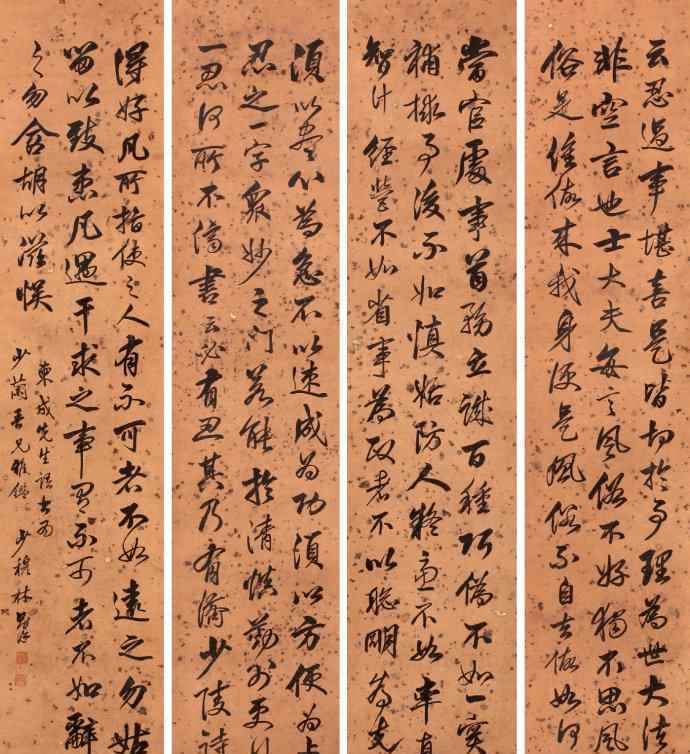 云忍過事堪喜是皆切於事理為世大法
非空言也士大夫每言風俗不好獨不思風
俗是誰做來我身便是風俗不自去做如何
當官處事首務立誠百種巧偽不如一實
補捄事後不如慎始防人疑慮不如率直
智計經營不如省事為政者不以聰明為先
須以盡心為急不以速成為功須以方便為上
忍之一字眾妙之門若能於清慎勤外更行
一忍何所不濟書云必有忍其乃有濟少陵詩
得好凡所指使之人有不可者不如遠之勿姑
留以致患凡遇干求之事有不可者不如辭
之勿含胡以滋悞
東成先生語書為
少蘭吾兄雅鑑 少穆林則徐